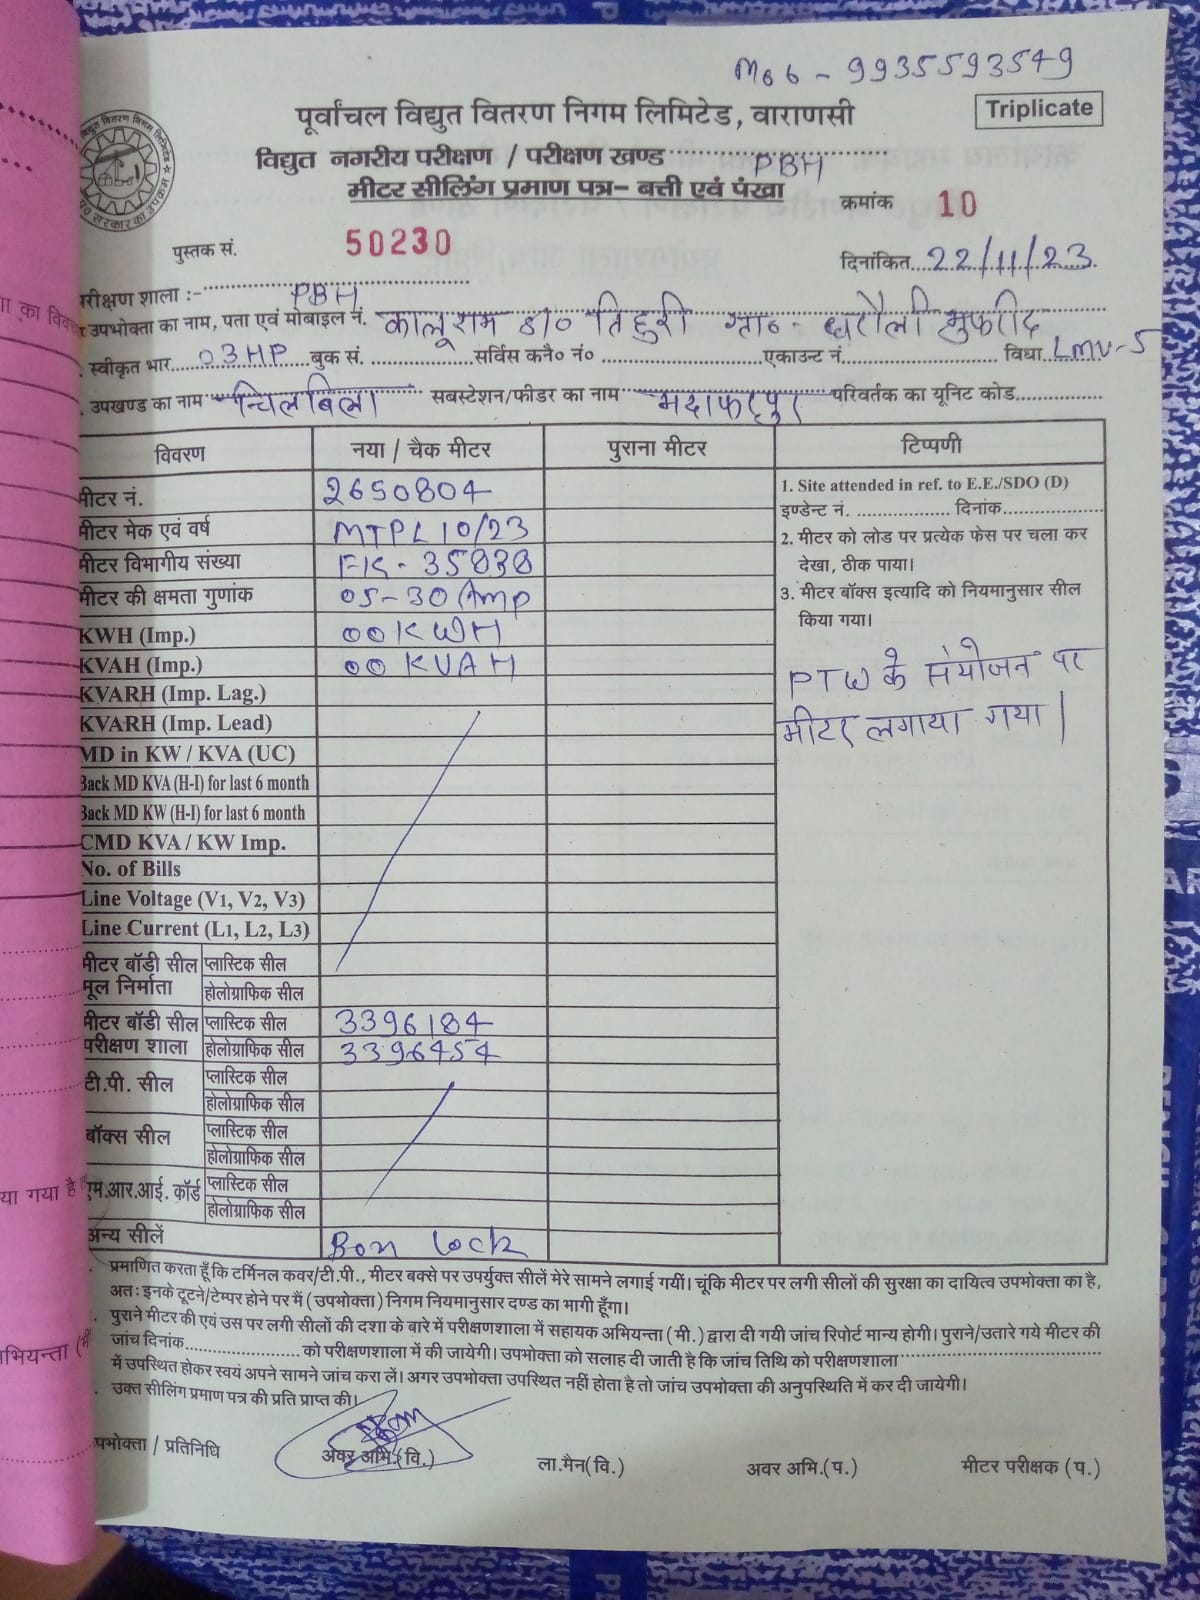 Mob - 9935593549
पूर्वांचल विद्युत वितरण निगम लिमिटेड, वाराणसी
Triplicate
विद्युत नगरीय परीक्षण / परीक्षण खण्ड PBH
मीटर सीलिंग प्रमाण पत्र- बत्ती एवं पंखा
क्रमांक 10
पुस्तक सं. 50230
दिनांकित 22/11/23
परीक्षण शाला :- PBH
उपभोक्ता का नाम, पता एवं मोबाइल नं. कालूराम S/o तिहुरी ग्रा०- धरौली मुफरीद
स्वीकृत भार 03HP बुक सं. सर्विस कनै० नं० एकाउन्ट नं. विधा LMV-5
उपखण्ड का नाम चिलबिला सबस्टेशन/फीडर का नाम परिवर्तक का यूनिट कोड
विवरण नया / चैक मीटर पुराना मीटर टिप्पणी
मीटर नं. 2650804
मीटर मेक एवं वर्ष MTPL 10/23
मीटर विभागीय संख्या EK- 35838
मीटर की क्षमता गुणांक 05-30 Amp
KWH (Imp.) 00 KWH
KVAH (Imp.) 00 KVAH
KVARH (Imp. Lag.)
KVARH (Imp. Lead)
MD in KW / KVA (UC)
Back MD KVA (H-I) for last 6 month
Back MD KW (H-I) for last 6 month
CMD KVA / KW Imp.
No. of Bills
Line Voltage (V1, V2, V3)
Line Current (L1, L2, L3)
मीटर बॉडी सील प्लास्टिक सील
मूल निर्माता होलोग्राफिक सील
मीटर बॉडी सील प्लास्टिक सील 3396184
परीक्षण शाला होलोग्राफिक सील 3396454
टी.पी. सील प्लास्टिक सील
होलोग्राफिक सील
बॉक्स सील प्लास्टिक सील
होलोग्राफिक सील
एम.आर.आई. कॉर्ड प्लास्टिक सील
होलोग्राफिक सील
अन्य सीलें Box Lock
1. Site attended in ref. to E.E./SDO (D)
इण्डेन्ट नं. दिनांक
2. मीटर को लोड पर प्रत्येक फेस पर चला कर
देखा, ठीक पाया।
3. मीटर बॉक्स इत्यादि को नियमानुसार सील
किया गया।
PTW के संयोजन पर
मीटर लगाया गया।
प्रमाणित करता हूँ कि टर्मिनल कवर/टी.पी., मीटर बक्से पर उपर्युक्त सीलें मेरे सामने लगाई गयीं। चूंकि मीटर पर लगी सीलों की सुरक्षा का दायित्व उपभोक्ता का है,
अतः इनके टूटने/टेम्पर होने पर मैं (उपभोक्ता) निगम नियमानुसार दण्ड का भागी हूँगा।
पुराने मीटर की एवं उस पर लगी सीलों की दशा के बारे में परीक्षणशाला में सहायक अभियन्ता (मी.) द्वारा दी गयी जांच रिपोर्ट मान्य होगी। पुराने/उतारे गये मीटर की
जांच दिनांक को परीक्षणशाला में की जायेगी। उपभोक्ता को सलाह दी जाती है कि जांच तिथि को परीक्षणशाला
में उपस्थित होकर स्वयं अपने सामने जांच करा लें। अगर उपभोक्ता उपस्थित नहीं होता है तो जांच उपभोक्ता की अनुपस्थिति में कर दी जायेगी।
उक्त सीलिंग प्रमाण पत्र की प्रति प्राप्त की।
उपभोक्ता / प्रतिनिधि अवर अभि.(वि.) ला.मैन(वि.) अवर अभि.(प.) मीटर परीक्षक (प.)